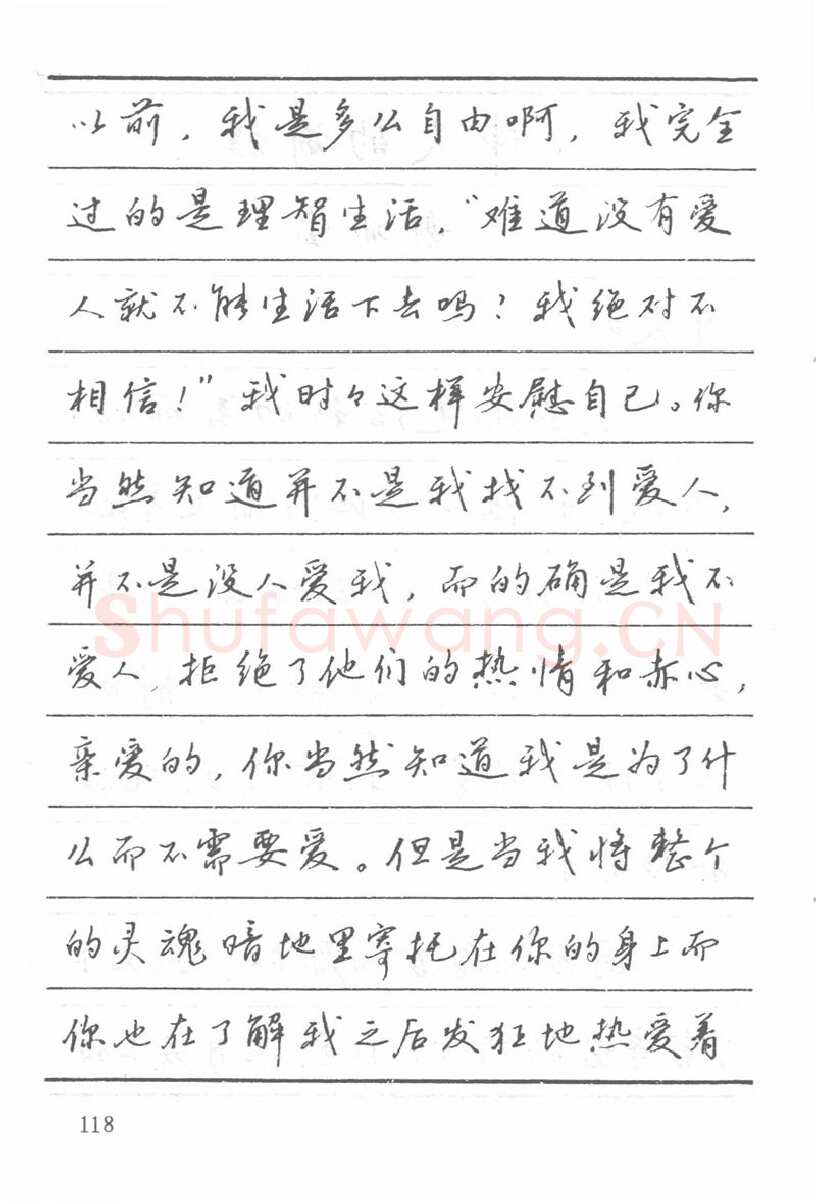 以前，我是多么自由啊，我完全
过的是理智生活，“难道没有爱
人就不能生活下去吗？我绝对不
相信！”我时々这样安慰自己。你
当然知道并不是我找不到爱人，
并不是没人爱我，而的确是我不
爱人，拒绝了他们的热情和赤心，
亲爱的，你当然知道我是为了什
么而不需要爱。但是当我将整个
的灵魂暗地里寄托在你的身上而
你也在了解我之后发狂地热爱着
118
Shufawang.CN